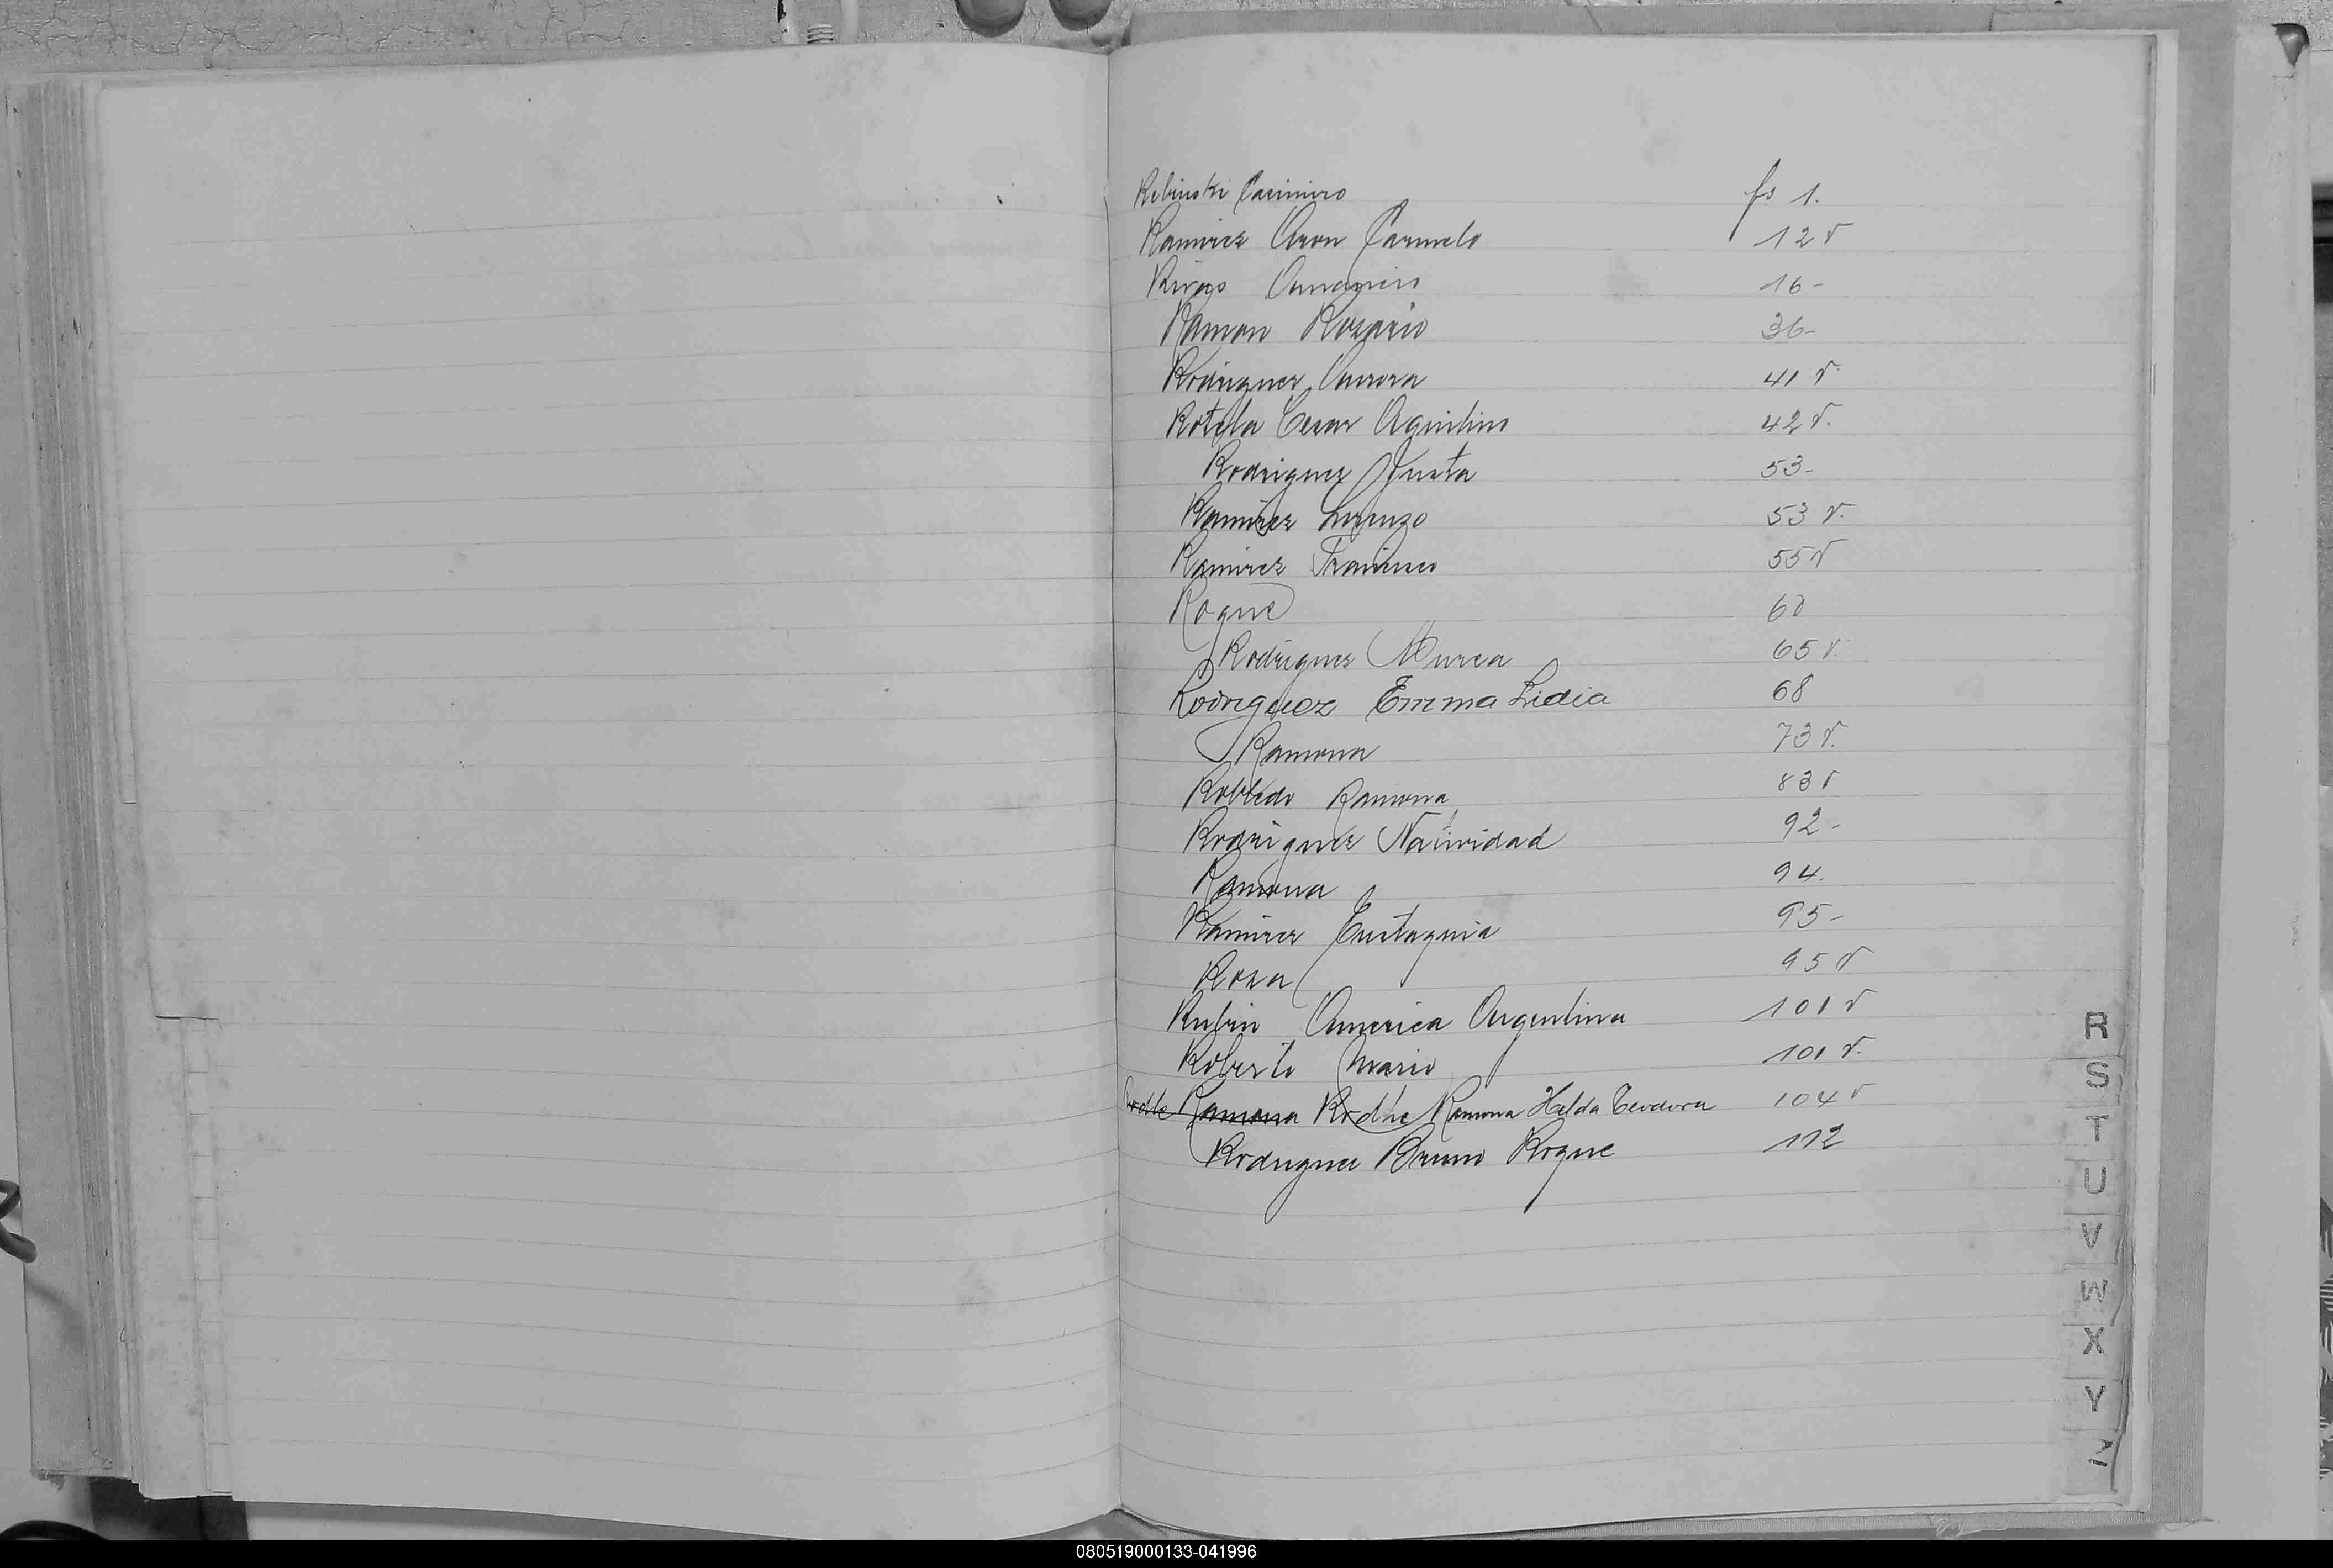 Rebinski Casimiro fs 1.
Ramirez Aron Carmelo 12 v
Rivas 16-
Ramon Rosario 36-
Rodriguez Aurora 41 v.
Rotela Cesar Aguilino 42 v.
Rodriguez Justa 53-
Ramirez Lorenzo 53 v.
Ramirez Francisco 55 v
Roque 60
Rodriguez 65 v.
Rodriguez Emma Lidia 68
Ramona 73 v.
Robledo Ramona 83 v
Rodriguez Natividad 92-
Ramona 94.
Ramirez Eustaquia 95-
Rosa 95 v
Rufin America Argentina 101 v
Roberto Mario 101 v.
Rodhe Ramona Rodhe Ramona Helda Teodora 104 v
Rodriguez Bruno Roque 112
R
S
T
U
V
W
X
Y
Z
080519000133-041996